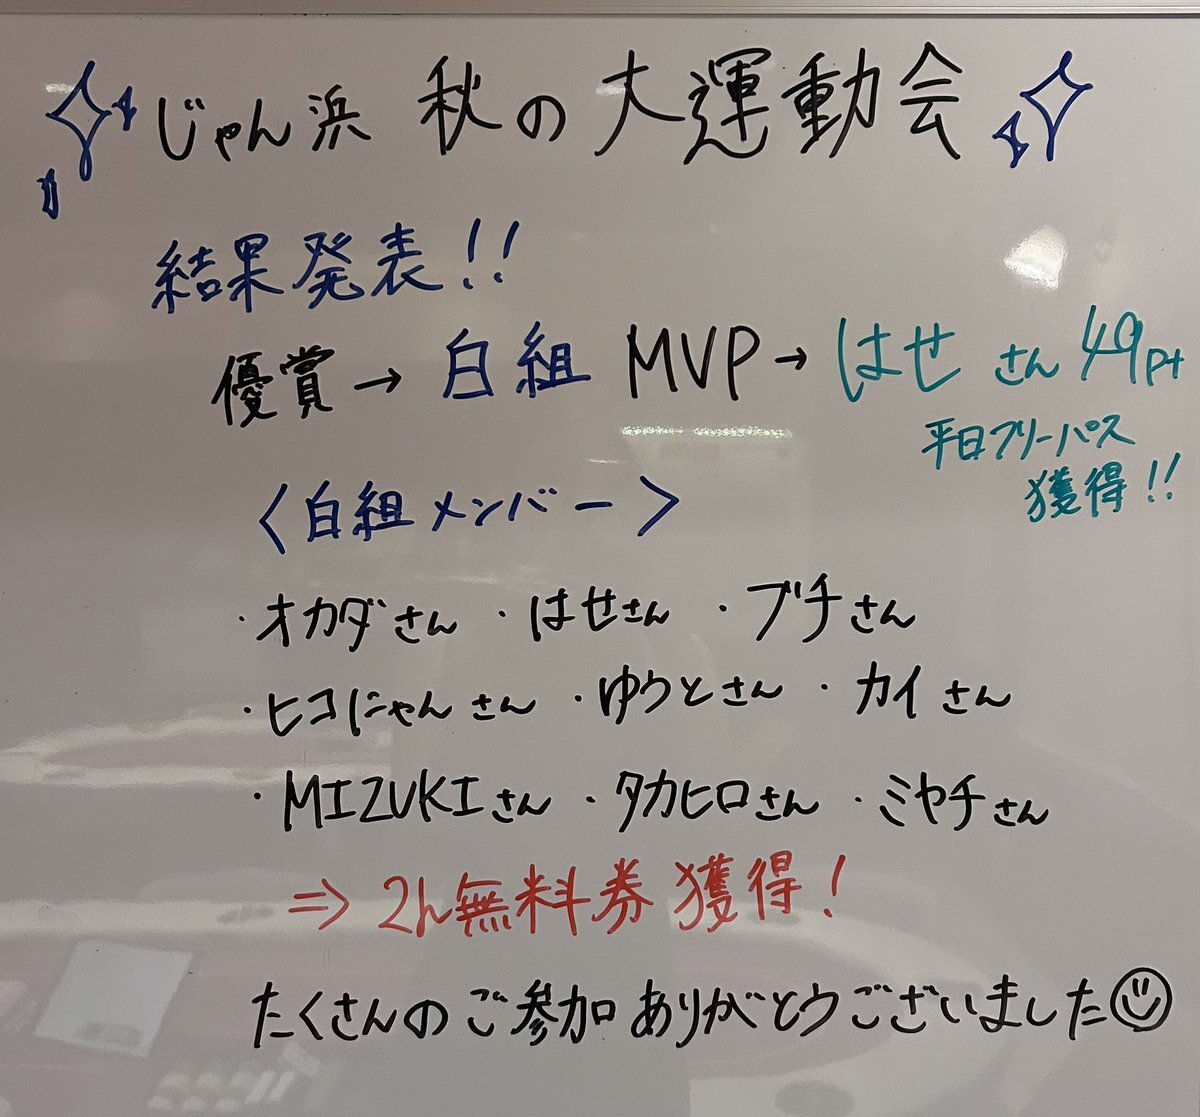 じゃん浜 秋の大運動会
結果発表!!
優賞→白組 MVP→はせさん 49pt
平日フリーパス
獲得!!
<白組メンバー>
・オカダさん ・はせさん ・ブチさん
・ヒコにゃんさん ・ゆうとさん ・カイさん
・MIZUKIさん ・タカヒロさん ・ミヤチさん
⇒ 2h無料券獲得!
たくさんのご参加ありがとうございました☺